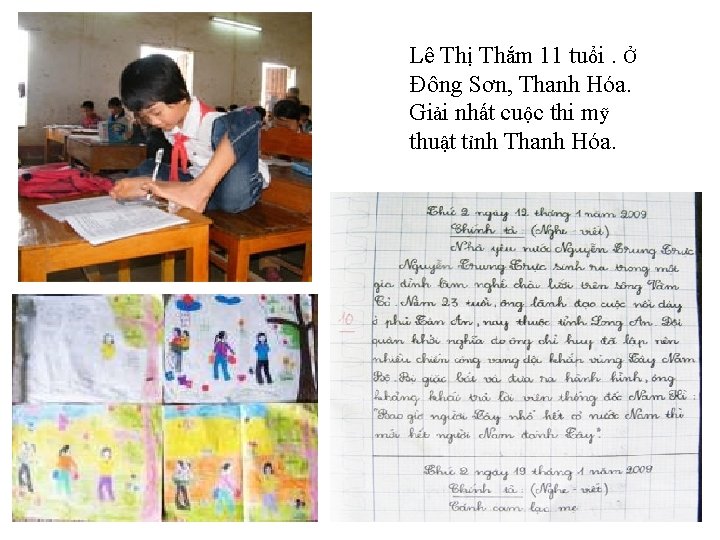 Lê Thị Thắm 11 tuổi . Ở
Đông Sơn, Thanh Hóa.
Giải nhất cuộc thi mỹ
thuật tỉnh Thanh Hóa.
Thứ 2 ngày 12 tháng 1 năm 2009
Chính tả : (Nghe - viết)
Nhà yêu nước Nguyễn Trung Trực
Nguyễn Trung Trực sinh ra trong một
gia đình làm nghề chài lưới trên sông Vàm
Cỏ. Năm 23 tuổi, ông lãnh đạo cuộc nổi dậy
10
ở phủ Tân An, nay thuộc tỉnh Long An. Đội
quân khởi nghĩa do ông chỉ huy đã lập nên
nhiều chiến công vang dội khắp vùng Tây Nam
Bộ. Bị giặc bắt và đưa ra hành hình, ông
khảng khái trả lời trên thống đốc Nam Kì :
"Bao giờ người Tây nhổ hết cỏ nước Nam thì
mới hết người Nam đánh Tây".
Thứ 2 ngày 19 tháng 1 năm 2009
Chính tả : (Nghe - viết)
Cánh cam lạc mẹ